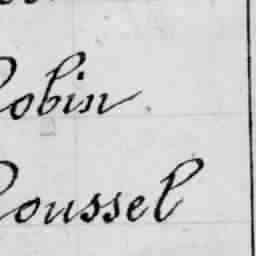 Robin
Roussel